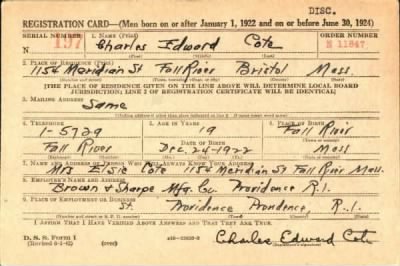 DISC.
REGISTRATION CARD—(Men born on or after January 1, 1922 and on or before June 30, 1924)
SERIAL NUMBER 1. NAME (Print) ORDER NUMBER
N 197 Charles Edward Cote N 11847
(First) (Middle) (Last)
2. PLACE OF RESIDENCE (Print)
1154 Meridian St Fall River Bristol Mass.
(Number and street) (Town, township, village, or city) (County) (State)
[THE PLACE OF RESIDENCE GIVEN ON THE LINE ABOVE WILL DETERMINE LOCAL BOARD
JURISDICTION; LINE 2 OF REGISTRATION CERTIFICATE WILL BE IDENTICAL]
3. MAILING ADDRESS
Same
4. TELEPHONE 5. AGE IN YEARS 6. PLACE OF BIRTH
1-5729 19 Fall River
DATE OF BIRTH
Fall River Dec. 24-1922 Mass
7. NAME AND ADDRESS OF PERSON WHO WILL ALWAYS KNOW YOUR ADDRESS
Mrs Elsie Cote 1154 Meridian St Fall River Mass.
8. EMPLOYER'S NAME AND ADDRESS
Brown & Sharpe Mfg. Co. Providence R.I.
9. PLACE OF EMPLOYMENT OR BUSINESS
St. Providence Providence, R.I.
(Number and street or R. F. D. number) (Town) (County) (State)
I AFFIRM THAT I HAVE VERIFIED ABOVE ANSWERS AND THAT THEY ARE TRUE.
D. S. S. Form 1
Charles Edward Cote